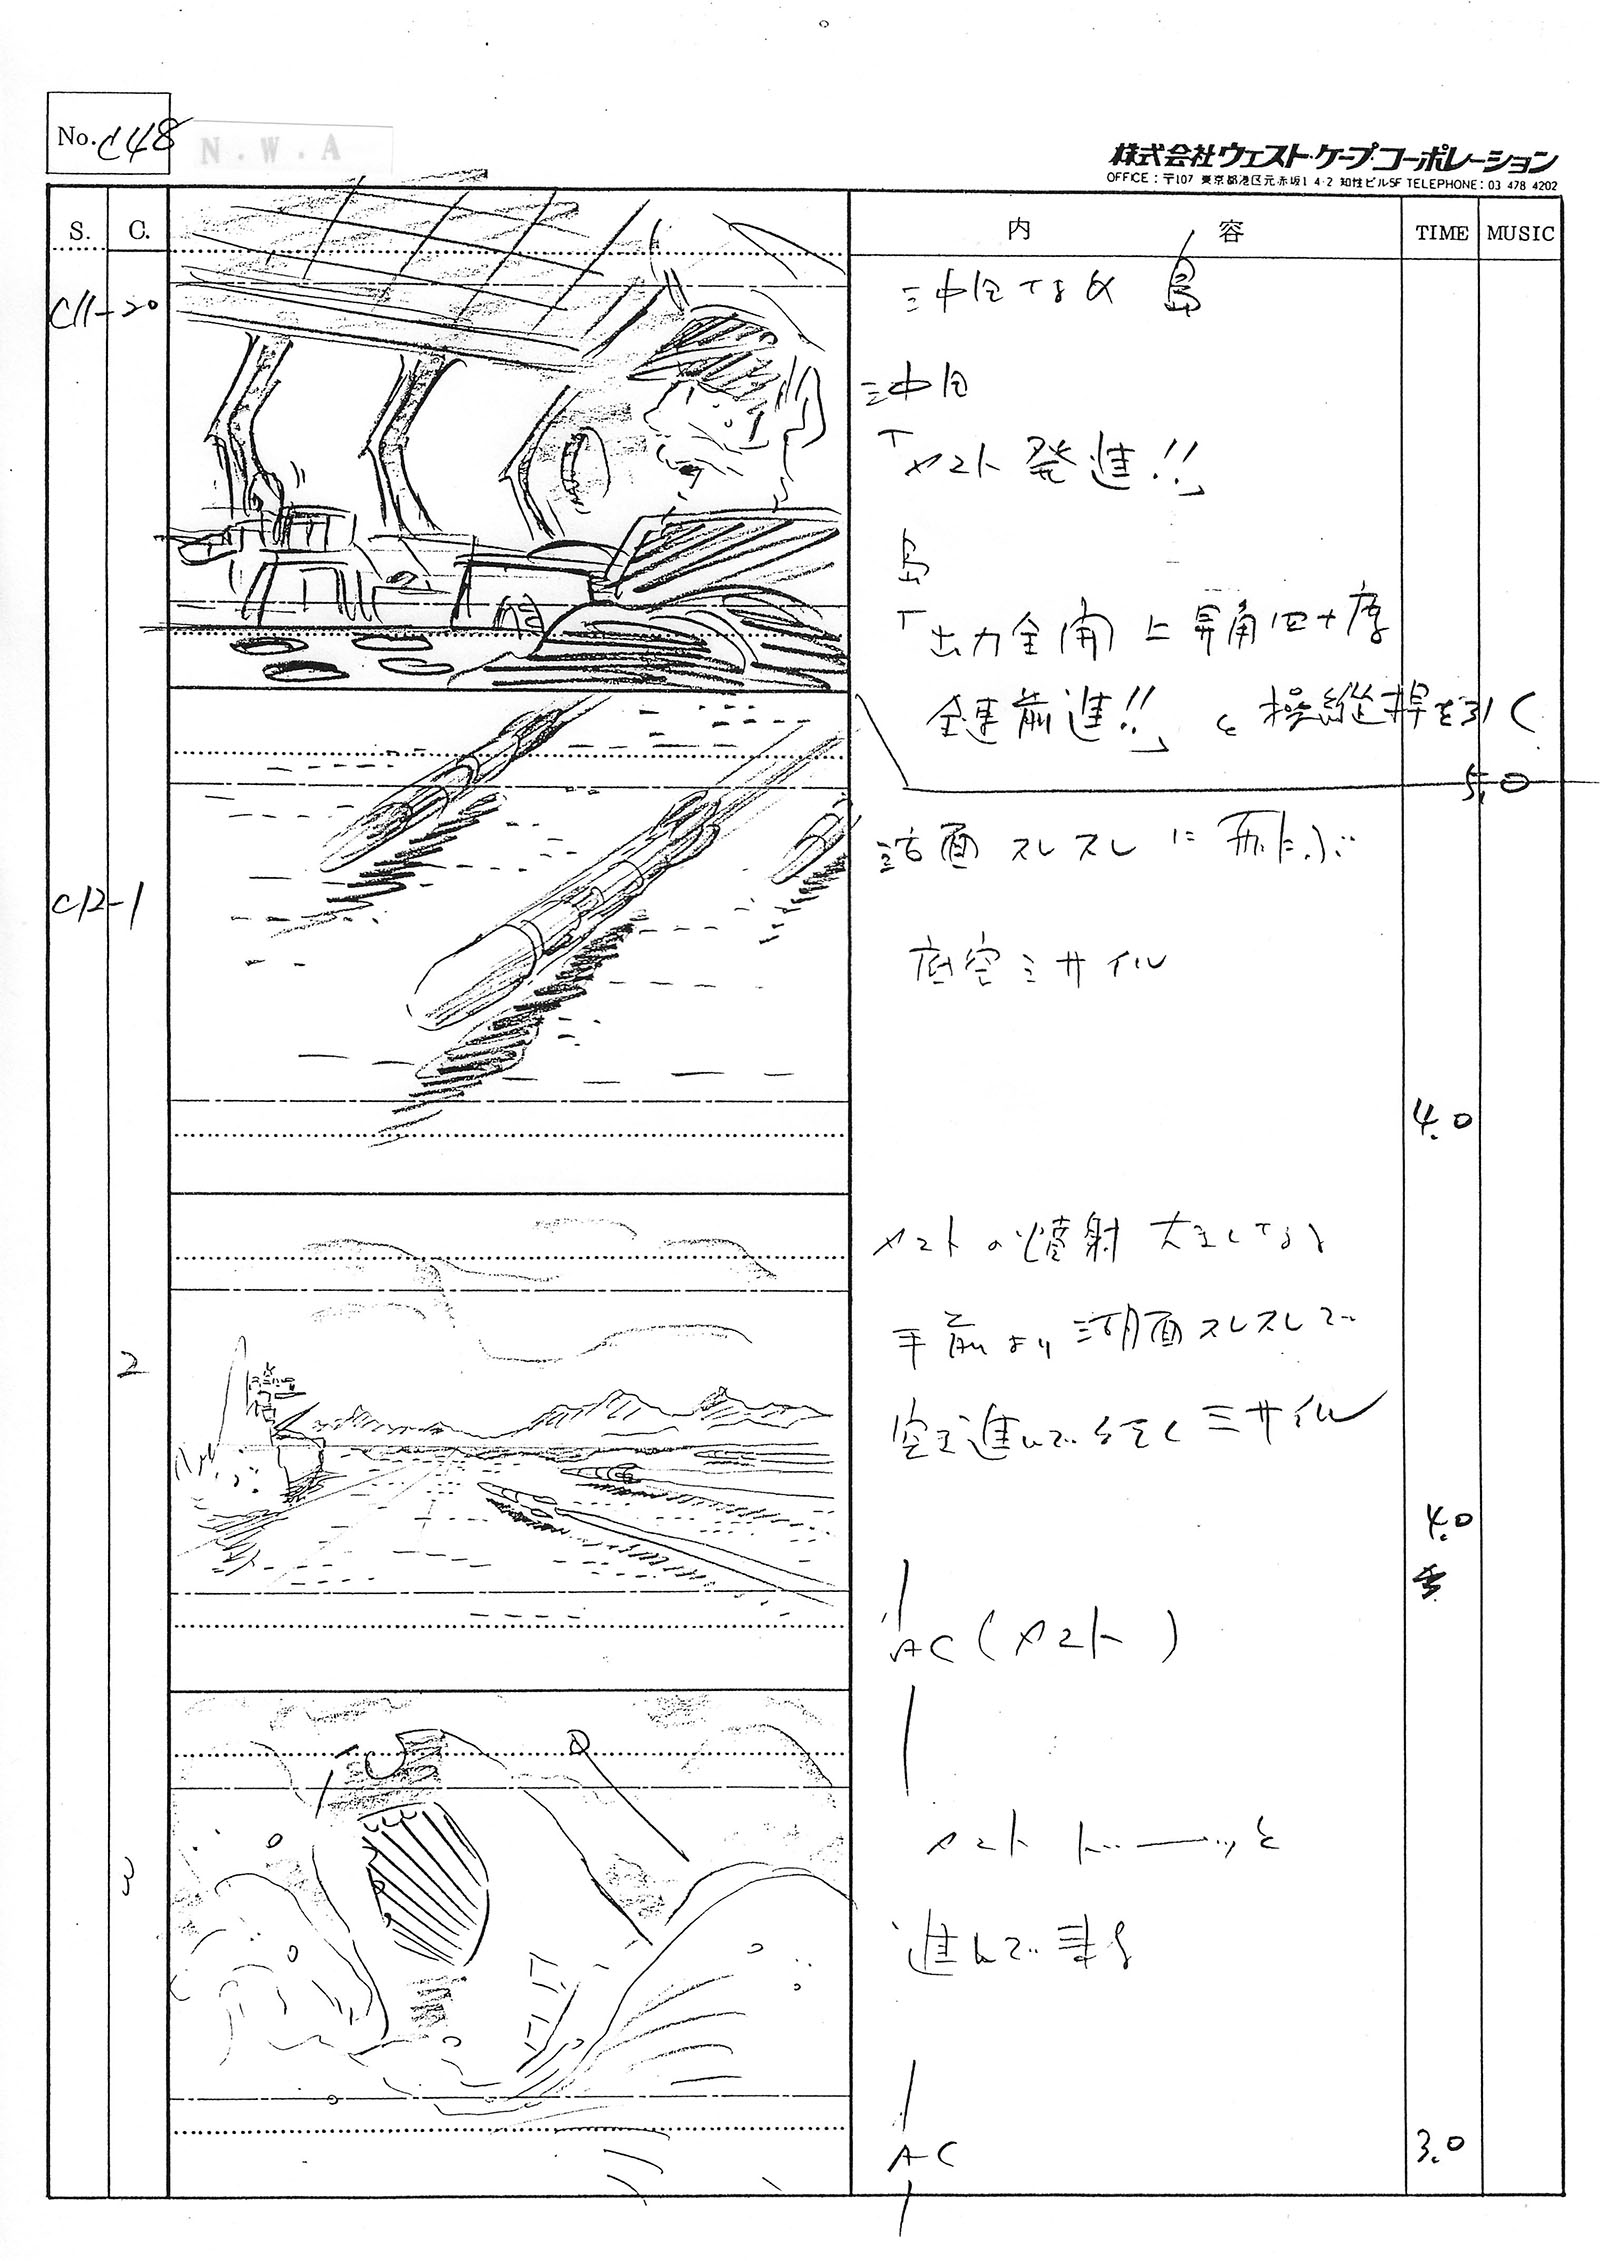 No. C48
N.W.A
株式会社ウェスト・ケープ・コーポレーション
OFFICE：〒107 東京都港区元赤坂1 4-2 知性ビル5F TELEPHONE：03 478 4202
S. C. 内容 TIME MUSIC
C11-20
沖田 島
沖田
「ヤマト 発進!!」
島
「出力全開 上昇角四十度
全速前進!!」 と 操縦桿を引く
5.0
C12-1
湖面 スレスレに 飛ぶ
底空ミサイル
4.0
2
ヤマトの噴射
手前より 湖面スレスレで
空を進んで行くミサイル
4.0
AC（ヤマト）
3
ヤマト ド———ッと
進んで来る
AC
3.0